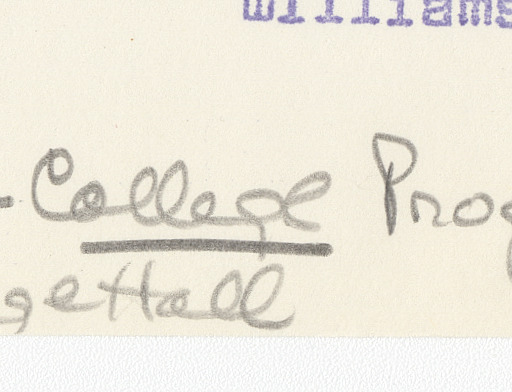 Williams
-College Prog
ge Hall